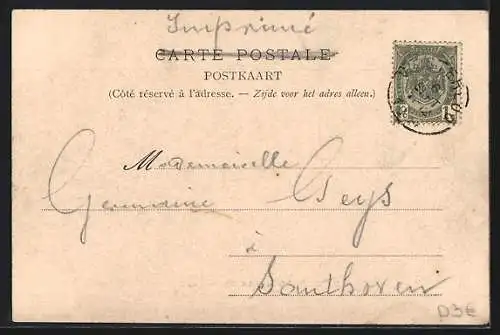 Imprimé
CARTE POSTALE
POSTKAART
(Côté réservé à l'adresse. — Zijde voor het adres alleen.)
Mademoiselle
Germaine Geys
à
Santhoven